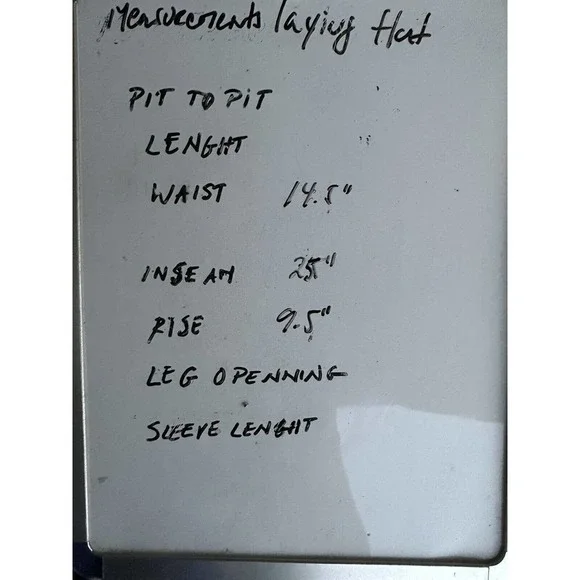 Measurements laying flat
PIT TO PIT
LENGHT
WAIST 14.5"
INSEAM 25"
RISE 9.5"
LEG OPENNING
SLEEVE LENGHT